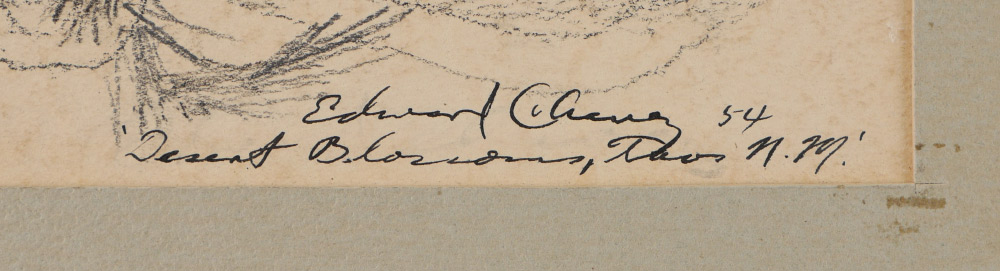 Edward Chavez 54
'Desert Blossoms, Taos N.M.'